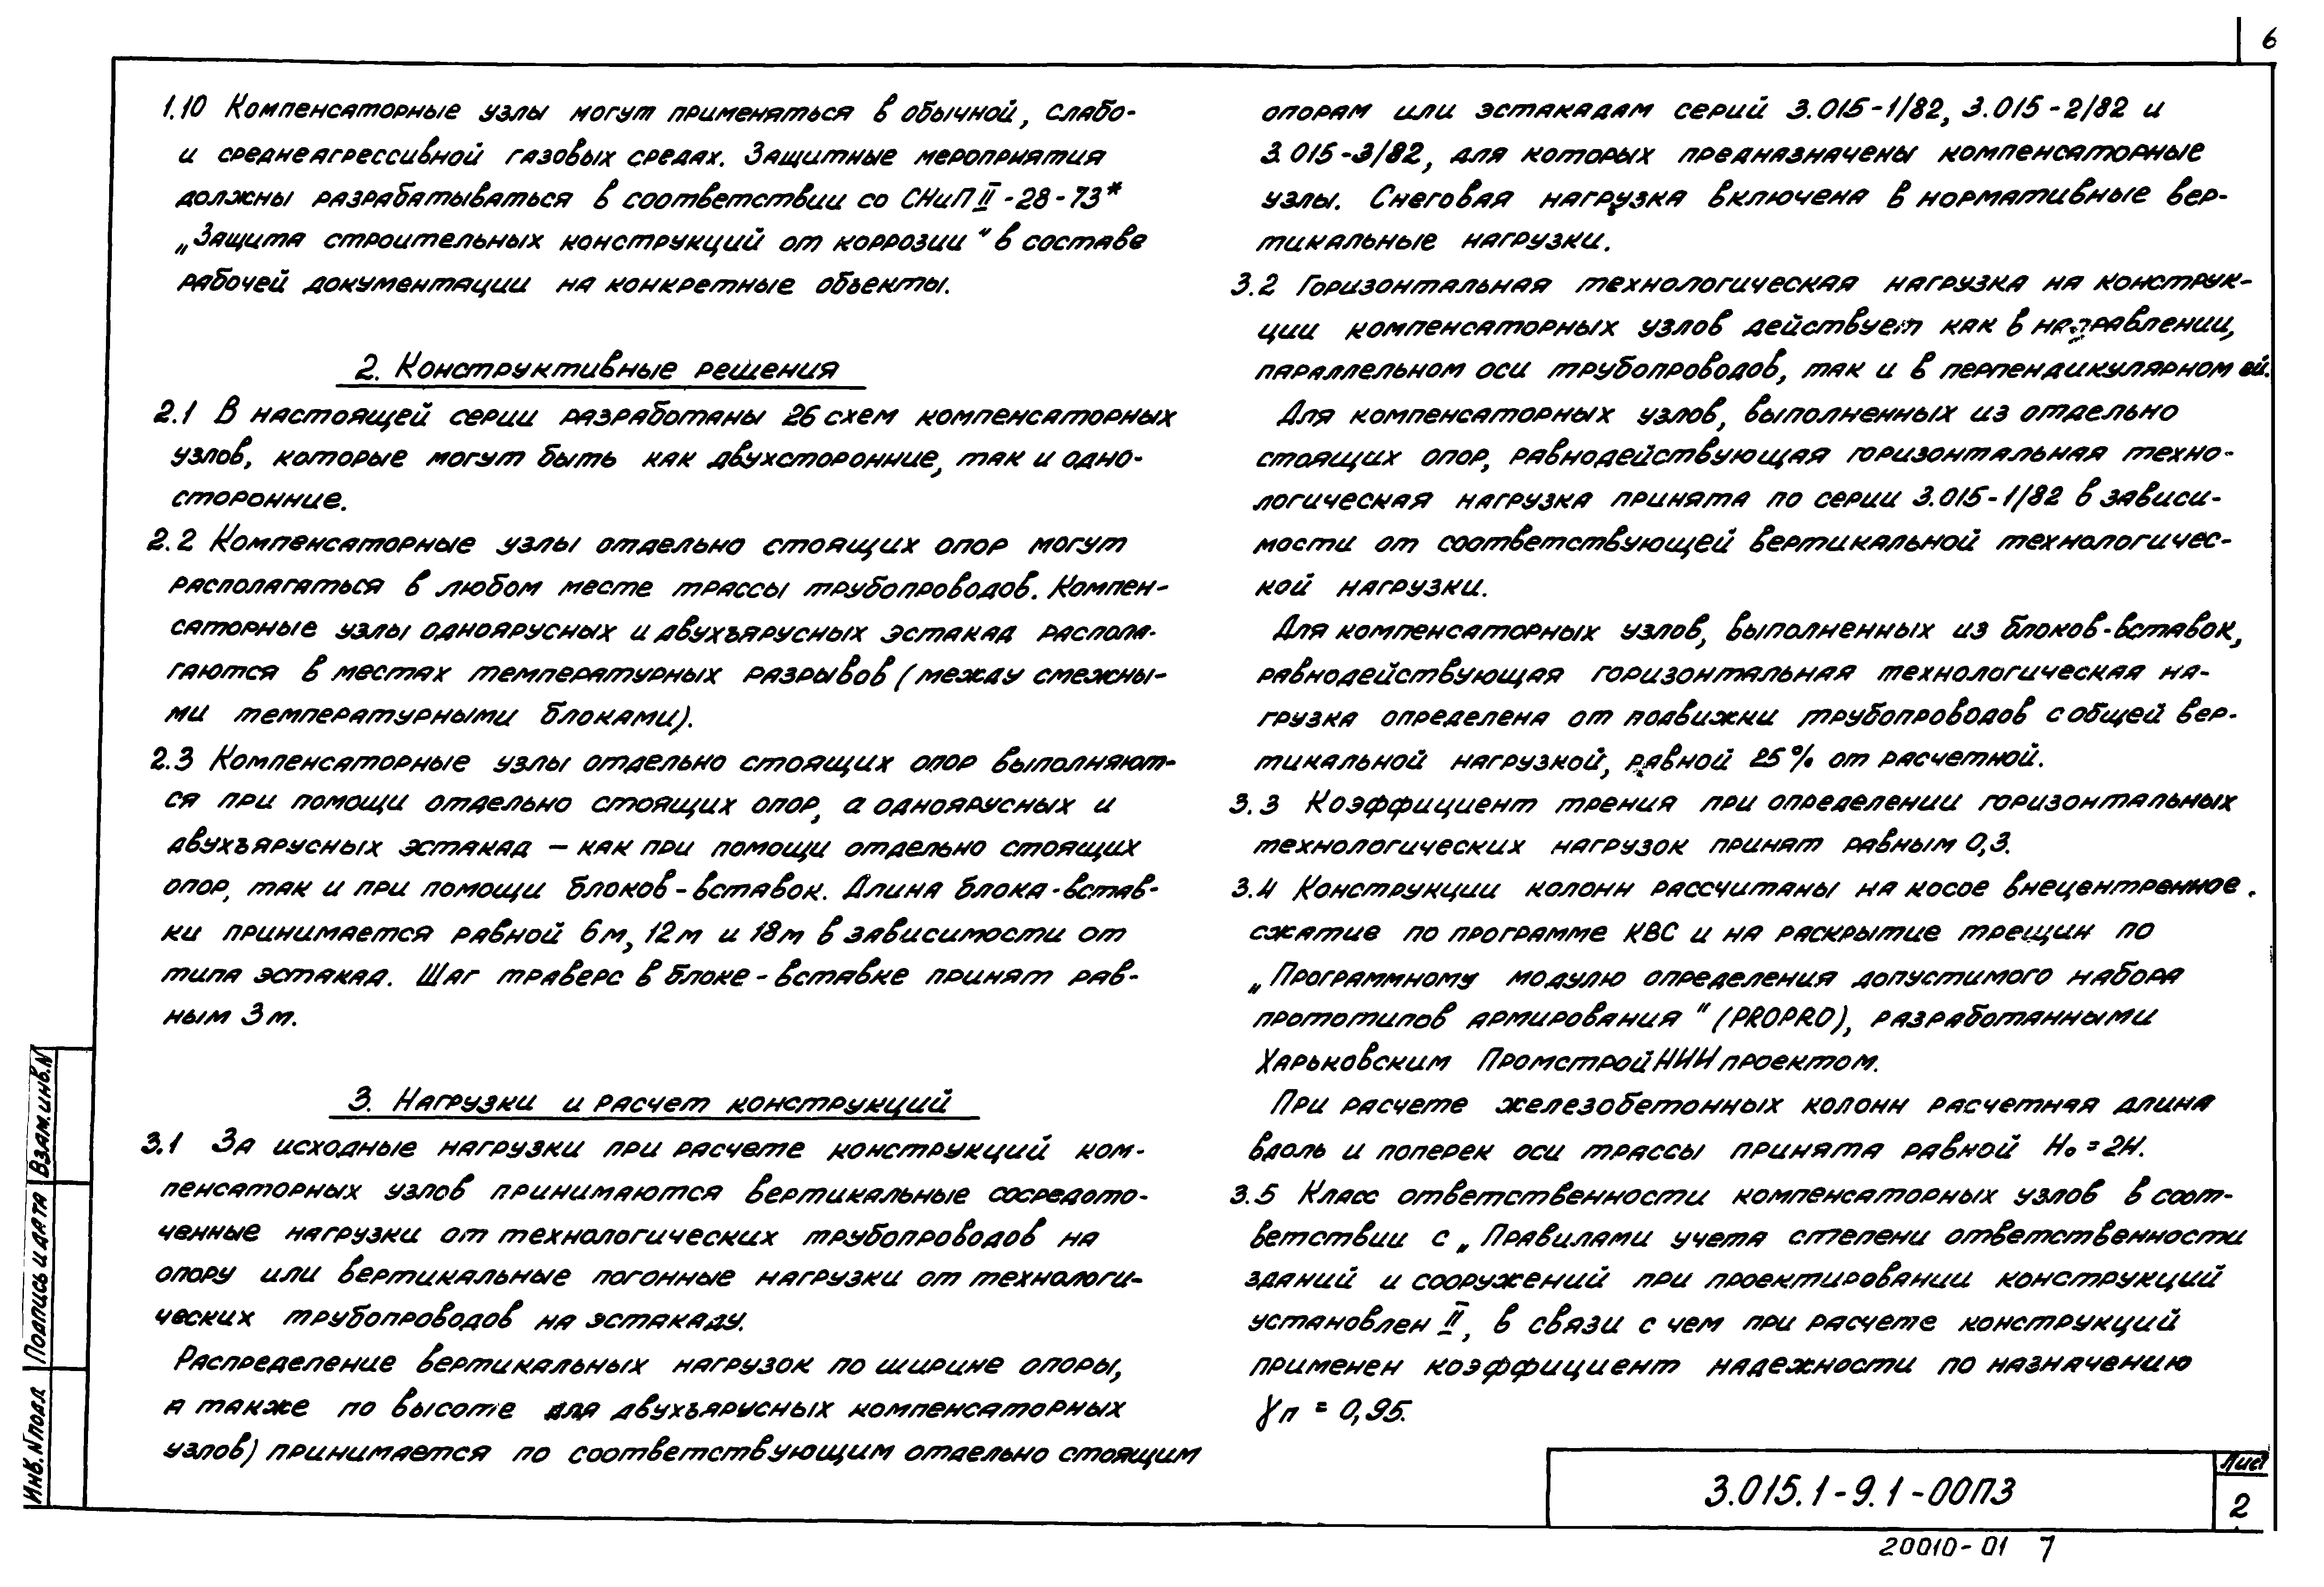 6
1.10 Компенсаторные узлы могут применяться в обычной, слабо-
и среднеагрессивной газовых средах. Защитные мероприятия
должны разрабатываться в соответствии со СНиП II-28-73*
„Защита строительных конструкций от коррозии“ в составе
рабочей документации на конкретные объекты.
2. Конструктивные решения
2.1 В настоящей серии разработаны 26 схем компенсаторных
узлов, которые могут быть как двухсторонние, так и одно-
сторонние.
2.2 Компенсаторные узлы отдельно стоящих опор могут
располагаться в любом месте трассы трубопроводов. Компен-
саторные узлы одноярусных и двухъярусных эстакад распола-
гаются в местах температурных разрывов (между смежны-
ми температурными блоками).
2.3 Компенсаторные узлы отдельно стоящих опор выполняют-
ся при помощи отдельно стоящих опор, а одноярусных и
двухъярусных эстакад – как при помощи отдельно стоящих
опор, так и при помощи блоков-вставок. Длина блока-встав-
ки принимается равной 6м, 12м и 18м в зависимости от
типа эстакад. Шаг траверс в блоке-вставке принят рав-
ным 3м.
3. Нагрузки и расчет конструкций
3.1 За исходные нагрузки при расчете конструкций ком-
пенсаторных узлов принимаются вертикальные сосредото-
ченные нагрузки от технологических трубопроводов на
опору или вертикальные погонные нагрузки от технологи-
ческих трубопроводов на эстакаду.
Распределение вертикальных нагрузок по ширине опоры,
а также по высоте для двухъярусных компенсаторных
узлов) принимается по соответствующим отдельно стоящим
опорам или эстакадам серий 3.015-1/82, 3.015-2/82 и
3.015-3/82, для которых предназначены компенсаторные
узлы. Снеговая нагрузка включена в нормативные вер-
тикальные нагрузки.
3.2 Горизонтальная технологическая нагрузка на конструк-
ции компенсаторных узлов действует как в направлении,
параллельном оси трубопроводов, так и в перпендикулярном ей.
Для компенсаторных узлов, выполненных из отдельно
стоящих опор, равнодействующая горизонтальная техно-
логическая нагрузка принята по серии 3.015-1/82 в зависи-
мости от соответствующей вертикальной технологичес-
кой нагрузки.
Для компенсаторных узлов, выполненных из блоков-вставок,
равнодействующая горизонтальная технологическая на-
грузка определена от подвижки трубопроводов с общей вер-
тикальной нагрузкой, равной 25% от расчетной.
3.3 Коэффициент трения при определении горизонтальных
технологических нагрузок принят равным 0,3.
3.4 Конструкции колонн рассчитаны на косое внецентренное
сжатие по программе КВС и на раскрытие трещин по
„Программному модулю определения допустимого набора
прототипов армирования“ (PROPRO), разработанными
Харьковским ПромстройНИИпроектом.
При расчете железобетонных колонн расчетная длина
вдоль и поперек оси трассы принята равной Но=2Н.
3.5 Класс ответственности компенсаторных узлов в соот-
ветствии с „Правилами учета степени ответственности
зданий и сооружений при проектировании конструкций
установлен II, в связи с чем при расчете конструкций
применен коэффициент надежности по назначению
γп = 0,95.
Инв.№подл. Подпись и дата Взам.инв.№
3.015.1-9.1-00ПЗ
Лист
2
20010-01 7